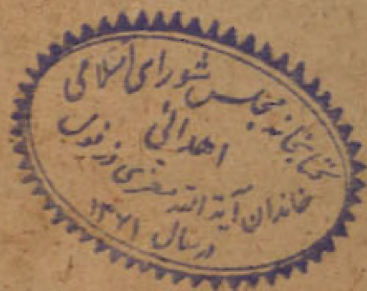 کتابخانه مجلس شورای اسلامی
اهدائی
خاندان آیة الله معزی دزفولی
در سال ۱۳۶۱